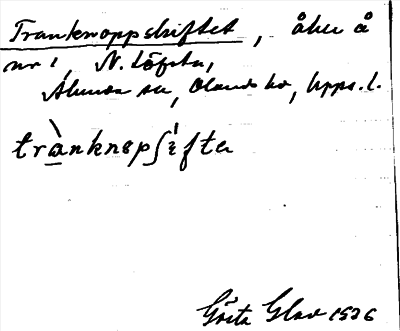 Tranknoppskiftet, åker å
nr 1, N. Löfsta,
Alunda sn, Olands hd, Upps. l.
trànknopʃíftə
Gösta Glav 1936